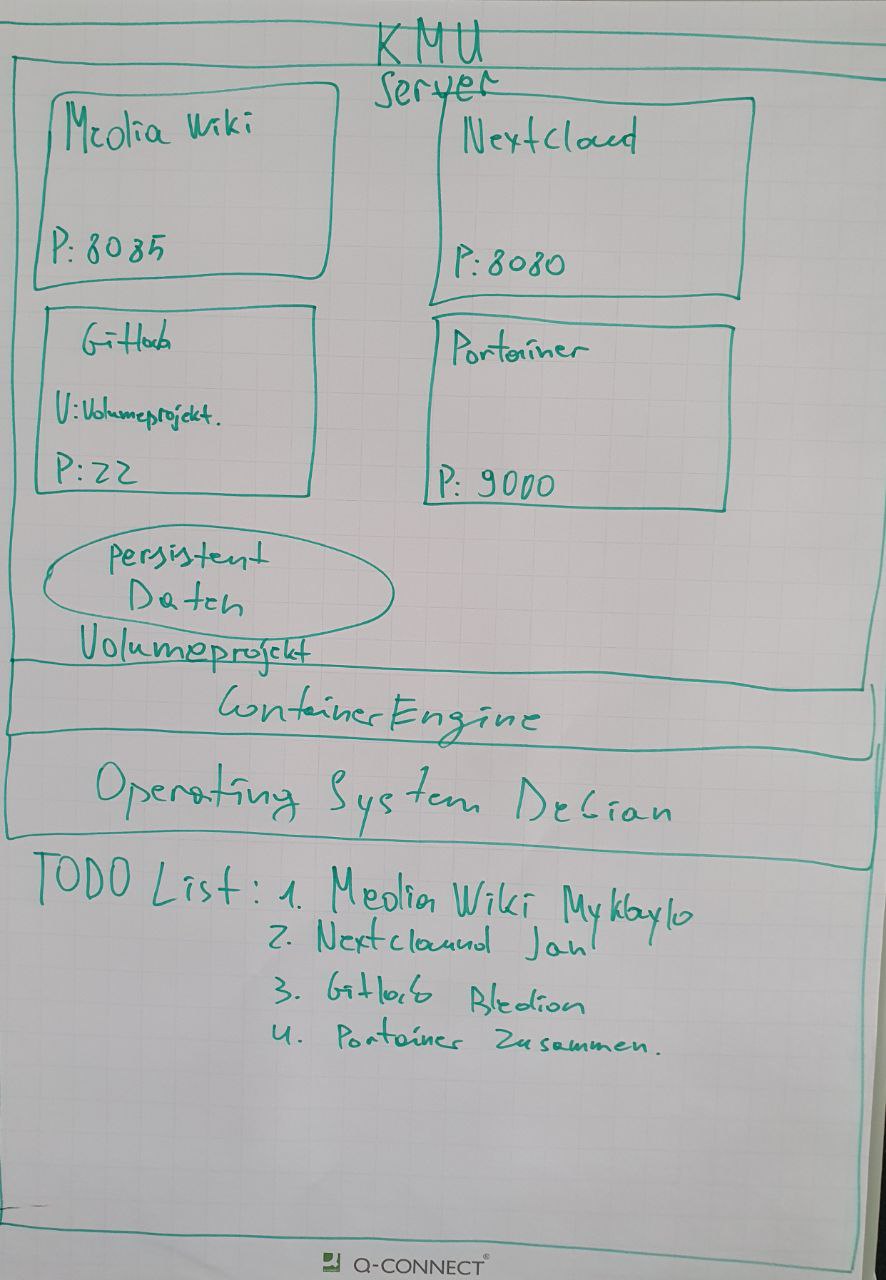 KMU
Server
Media Wiki
P: 8085
Nextcloud
P: 8080
Gitlab
V: Volumeprojekt.
P: 22
Portainer
P: 9000
persistent
Daten
Volumeprojekt
Container Engine
Operating System Debian
TODO List: 1. Media Wiki Mykhaylo
2. Nextclound Jan
3. Gitlab Bledion
4. Portainer Zusammen.
Q-CONNECT®